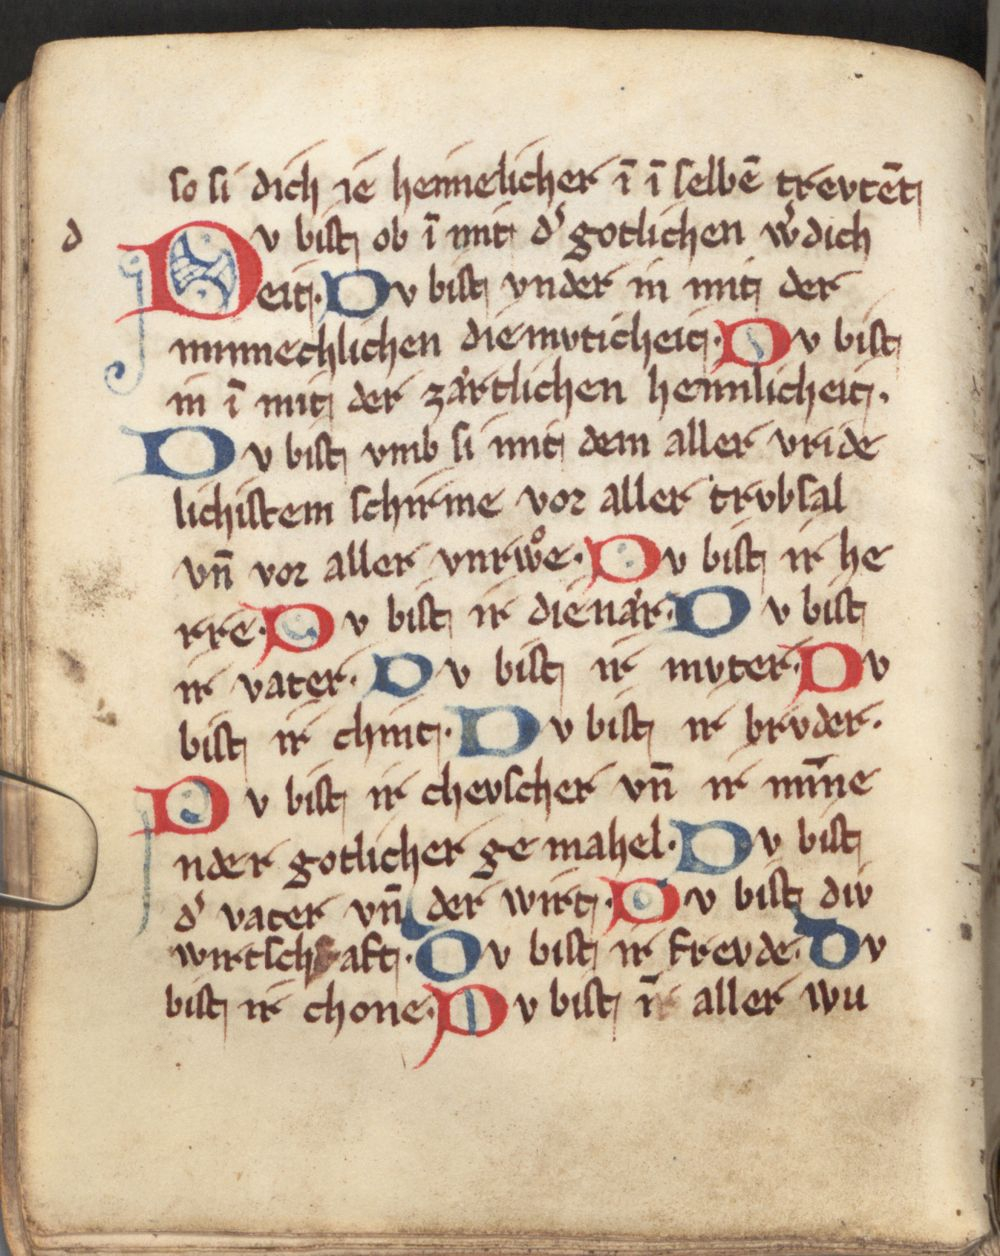 so si dich ie heimelicher ī ī selbē trevtēt
d Dv bist ob ī mit dˀ gotlichen wˀdich
eit· Dv bist vnder in mit der
minnechlichen diemvticheit· Dv bist
in ī mit der zårtlichen heimlicheit·
Dv bist vmb si mit dem aller vride
lichistem schirme vor aller trvbsal
vn̄ vor aller vnrwͦe· Dv bist ir he
rre· Dv bist ir dienår· Dv bist
ir vater· Dv bist ir mvter· Dv
bist ir chint· Dv bist ir brvder·
Dv bist ir chevscher vn̄ ir mīne
nder gotlicher ge mahel· Dv bist
dˀ vater vn̄ der wirt· Dv bist div
wirtschaft· Dv bist ir frevde· Dv
bist ir chone· Dv bist ī aller wu